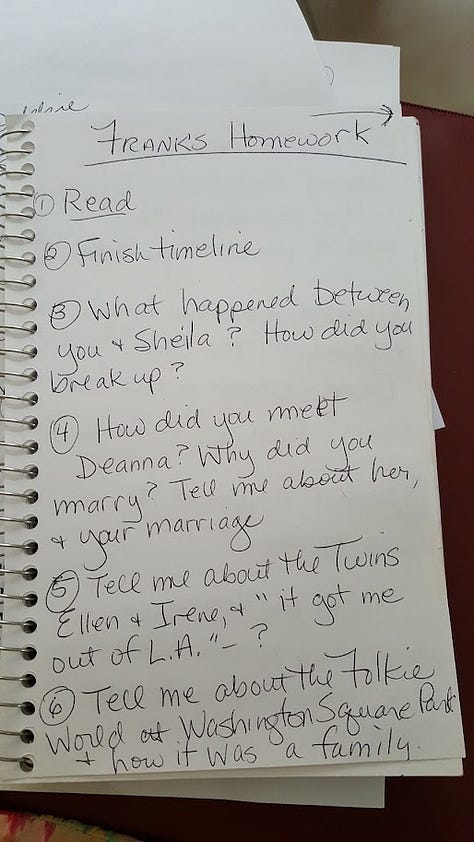 timeline
FRANK'S HOMEWORK
① Read
② Finish timeline
③ What happened between
you + Sheila? How did you
break up?
④ How did you meet
Deanna? Why did you
marry? Tell me about her,
+ your marriage
⑤ Tell me about the Twins
Ellen + Irene, + "it got me
out of L.A." - ?
⑥ Tell me about the Folkie
World at Washington Square Park
+ how it was a family.